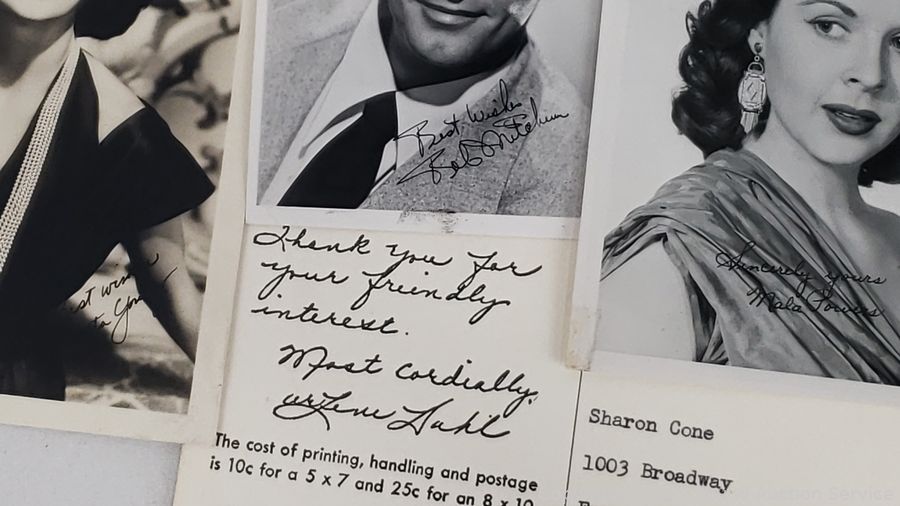 to you
Best Wishes
Bob Mitchum
Thank you for
your friendly
interest.
Most cordially,
Arlene Dahl
The cost of printing, handling and postage
is 10c for a 5 x 7 and 25c for an 8 x 10
Sincerely yours
Mala Powers
Sharon Cone
1003 Broadway
Auction Service